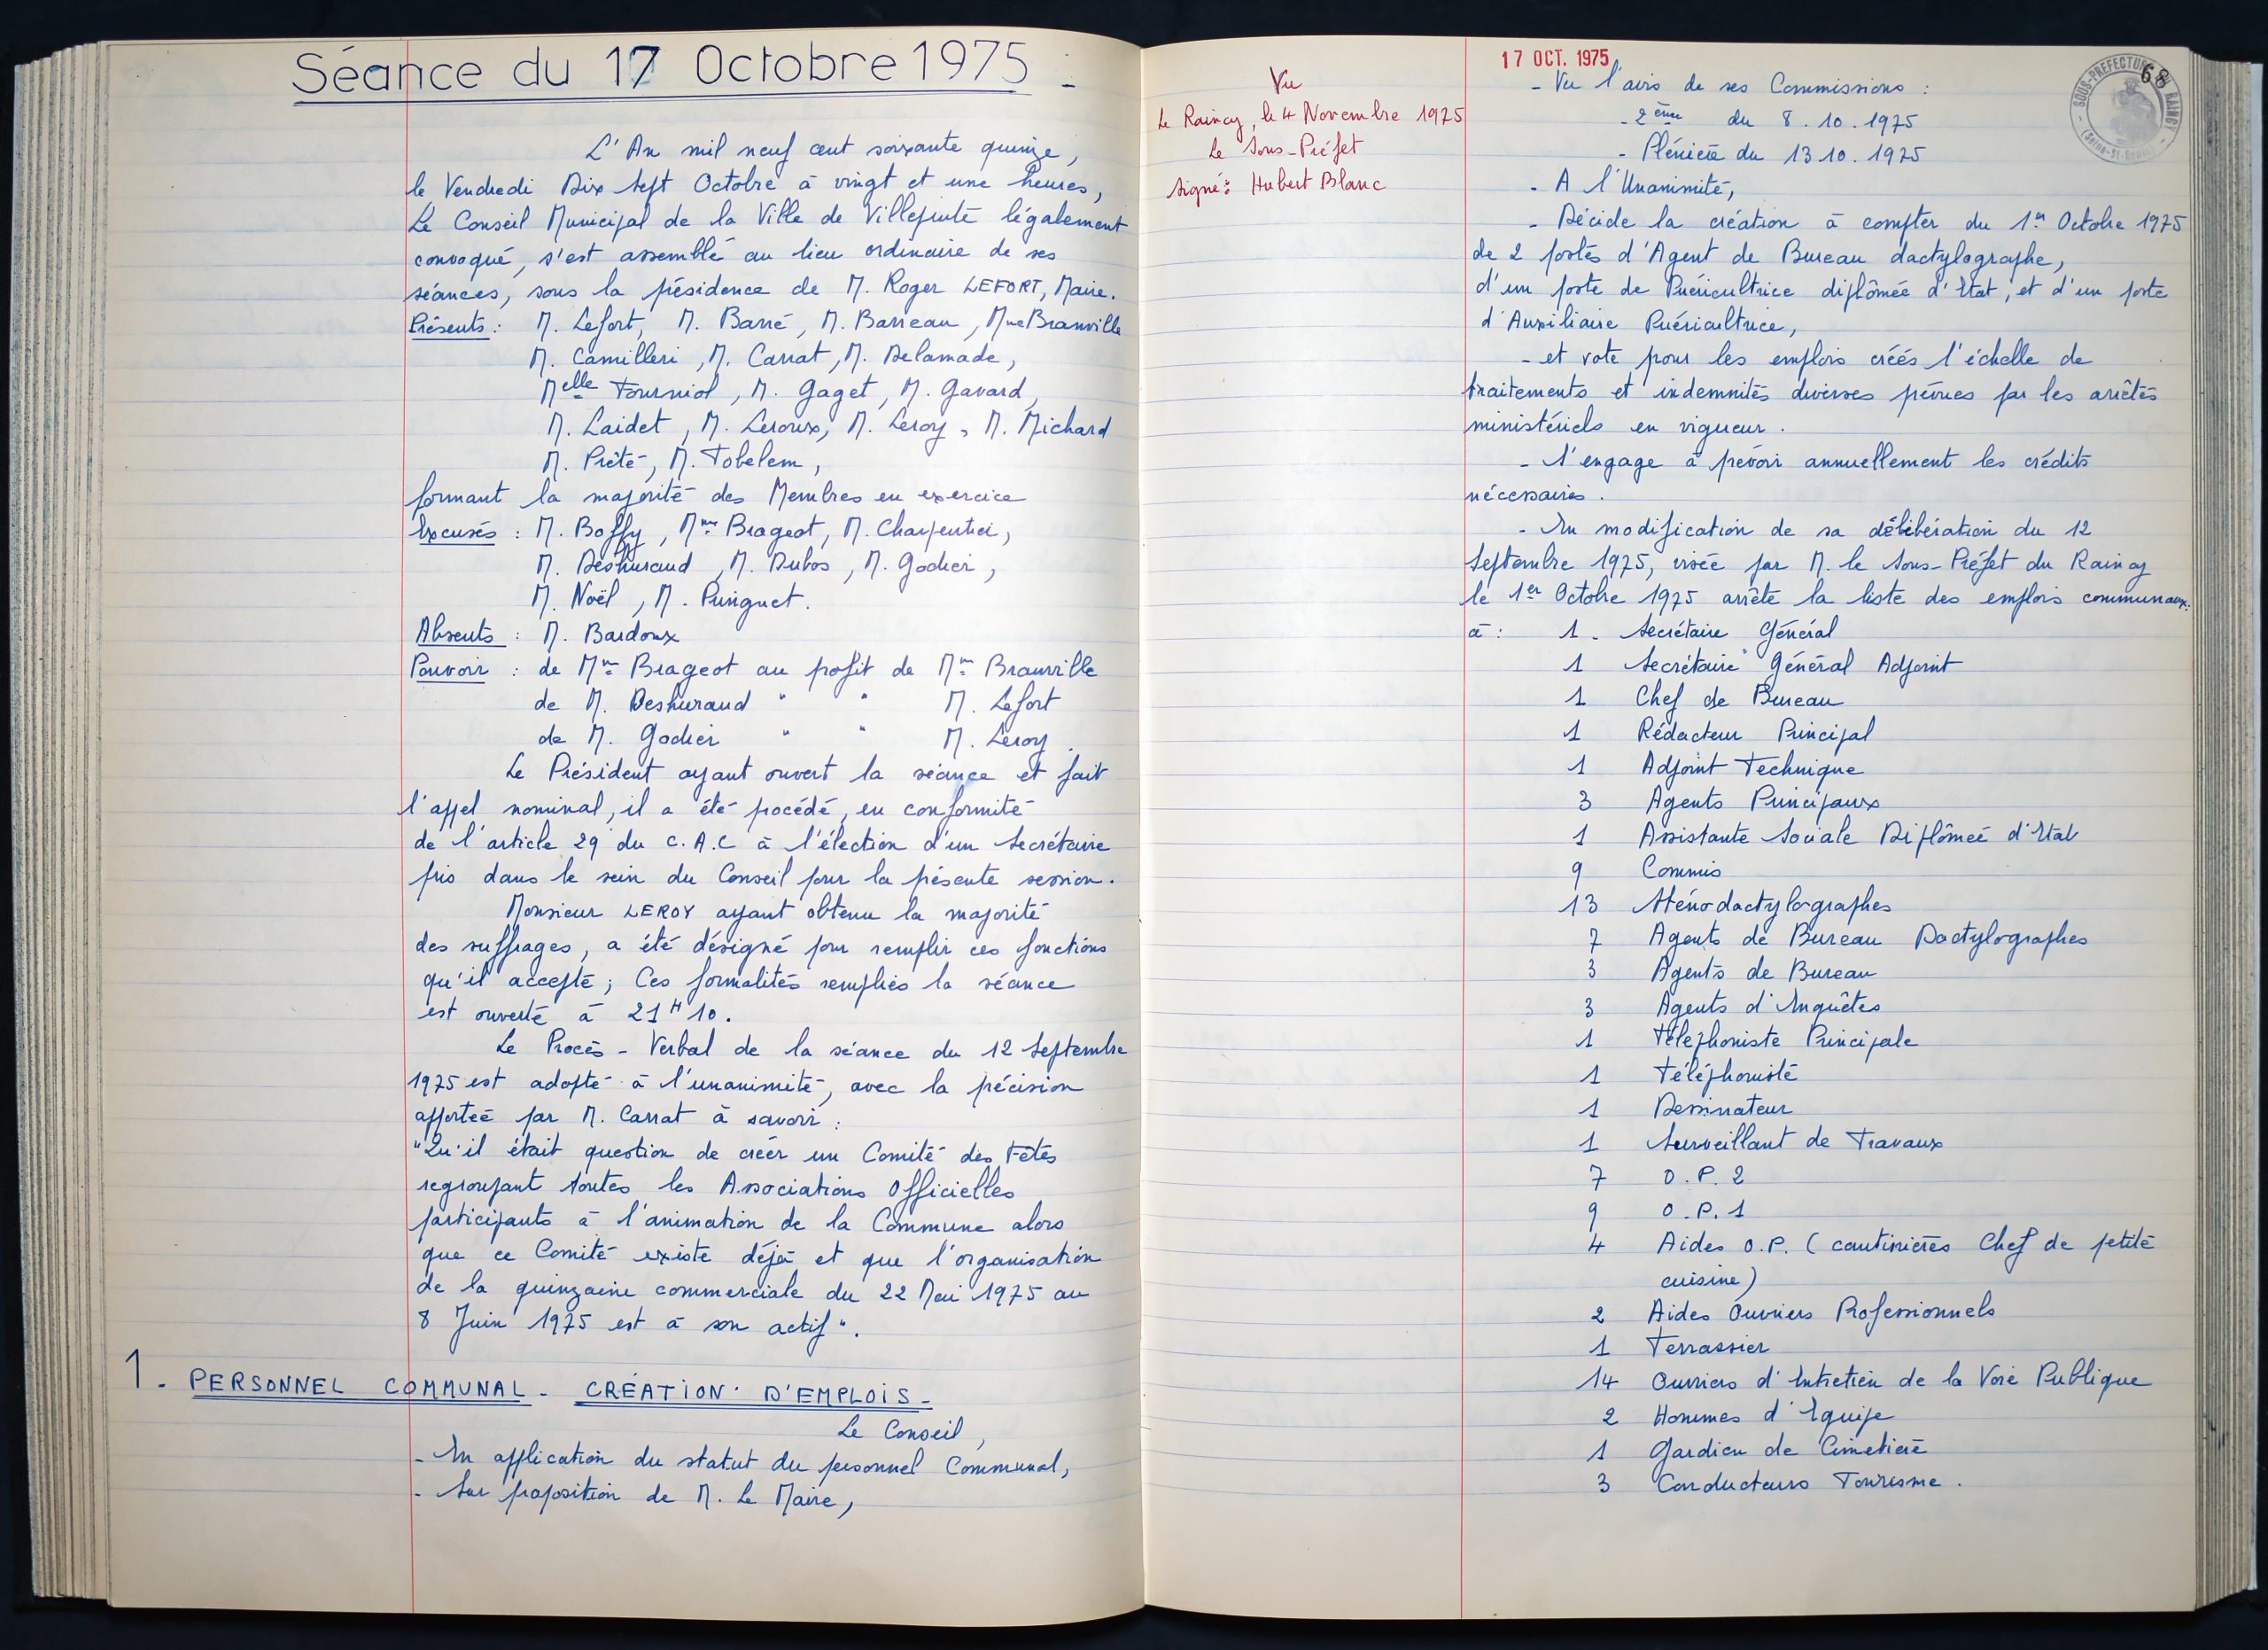 Séance du 17 Octobre 1975 -
L'An mil neuf cent soixante quinze,
le Vendredi Dix Sept Octobre à vingt et une heures,
Le Conseil Municipal de la Ville de Villepinte légalement
convoqué, s'est assemblé au lieu ordinaire de ses
séances, sous la présidence de M. Roger LEFORT, Maire.
Présents : M. Lefort, M. Barré, M. Barreau, Mme Branville
M. Camilleri, M. Carrat, M. Delamade,
Melle Fourniol, M. Gaget, M. Gavard,
M. Laidet, M. Leroux, M. Leroy, M. Michard
M. Piété, M. Tobelem,
formant la majorité des Membres en exercice
Excusés : M. Boffy, Mme Brageot, M. Charpentier,
M. Deshuraud, M. Dubos, M. Godier,
M. Noël, M. Puriguet.
Absents : M. Bardoux
Pouvoir : de Mme Brageot au profit de Mme Branville
de M. Deshuraud " " M. Lefort
de M. Godier " " M. Leroy.
Le Président ayant ouvert la séance et fait
l'appel nominal, il a été procédé, en conformité
de l'article 29 du C.A.C à l'élection d'un Secrétaire
pris dans le sein du Conseil pour la présente session.
Monsieur LEROY ayant obtenu la majorité
des suffrages, a été désigné pour remplir ces fonctions
qu'il accepte ; Ces formalités remplies la séance
est ouverte à 21H10.
Le Procès-Verbal de la séance du 12 Septembre
1975 est adopté à l'unanimité, avec la précision
apportée par M. Carrat à savoir :
"Qu'il était question de créer un Comité des Fêtes
regroupant toutes les Associations Officielles
participants à l'animation de la Commune alors
que ce Comité existe déjà et que l'organisation
de la quinzaine commerciale du 22 Mai 1975 au
8 Juin 1975 est à son actif".
1. PERSONNEL COMMUNAL - CRÉATION D'EMPLOIS -
Le Conseil,
- En application du statut du personnel Communal,
- Sur proposition de M. Le Maire,
Vu
Le Raincy, le 4 Novembre 1975
Le Sous-Préfet
Signé : Hubert Blanc
17 OCT. 1975
68
SOUS-PREFECTURE RAINCY
- Vu l'avis de ses Commissions :
- 2ème du 8.10.1975
- Plénière du 13 10. 1975
- A l'Unanimité,
- Décide la création à compter du 1er Octobre 1975
de 2 postes d'Agent de Bureau dactylographe,
d'un poste de Puéricultrice diplômée d'Etat, et d'un poste
d'Auxiliaire Puéricultrice,
- et vote pour les emplois créés l'échelle de
traitements et indemnités diverses prévues par les arrêtés
ministériels en vigueur.
- S'engage à prévoir annuellement les crédits
nécessaires.
- En modification de sa délibération du 12
Septembre 1975, visée par M. le Sous-Préfet du Raincy
le 1er Octobre 1975 arrête la liste des emplois communaux
à : 1. Secrétaire Général
1 Secrétaire Général Adjoint
1 Chef de Bureau
1 Rédacteur Principal
1 Adjoint Technique
3 Agents Principaux
1 Assistante Sociale Diplômée d'Etat
9 Commis
13 Sténodactylographes
7 Agents de Bureau Dactylographes
3 Agents de Bureau
3 Agents d'Enquêtes
1 Téléphoniste Principale
1 Téléphoniste
1 Dessinateur
1 Surveillant de Travaux
7 O.P.2
9 O.P.1
4 Aides O.P. (cantinières Chef de petite
cuisine)
2 Aides Ouvriers Professionnels
1 Terrassier
14 Ouvriers d'Entretien de la Voie Publique
2 Hommes d'Equipe
1 Gardien de Cimetière
3 Conducteurs Tourisme.